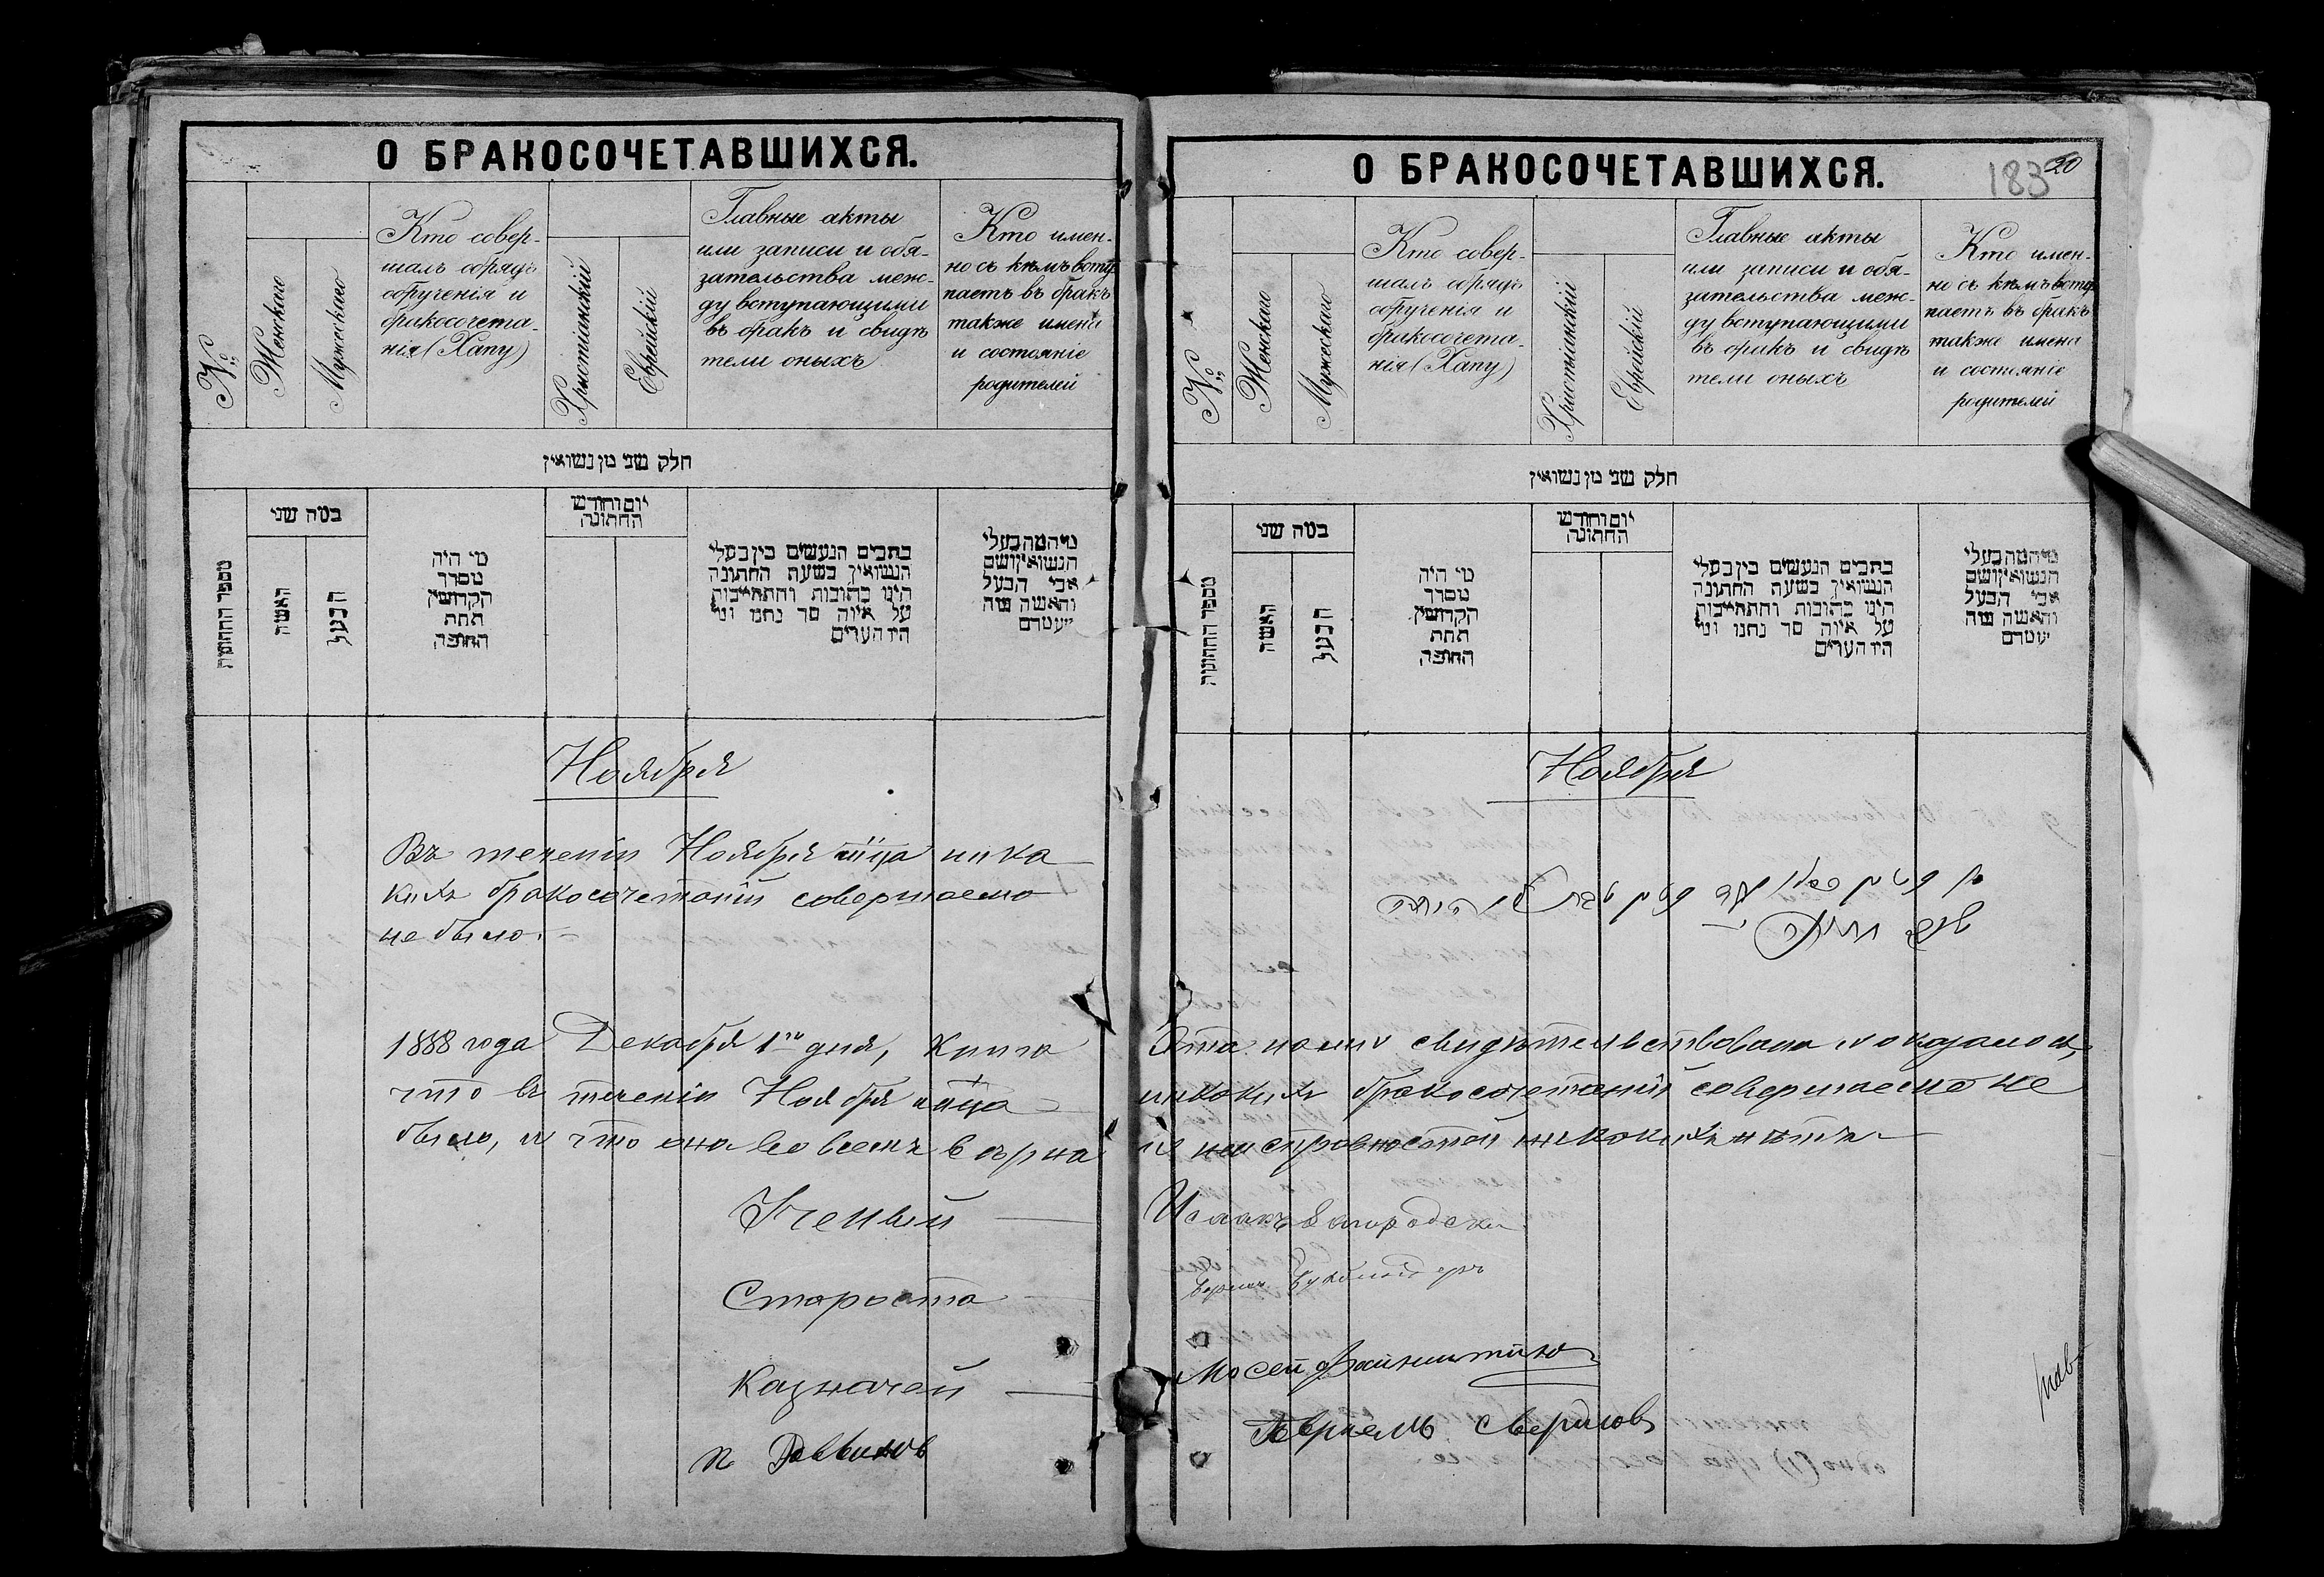 О БРАКОСОЧЕТАВШИХСЯ.
№
Женскаго
Мужескаго
Кто совер-
шалъ обрядъ
обрученія и
бракосочета-
нія (Хапу)
Христіанскій
Еврейскій
Главные акты
или записи и обя-
зательства меж-
ду вступающими
въ бракъ и свидѣ
тели оныхъ
Кто имен-
но съ кѣмъ всту
паетъ въ бракъ
также имена
и состояніе
родителей
חלק שני מן נשואין
מספר החתונות
כמה שני
האשה
הבעל
מי היה
מסדר
הקדושין
תחת
החופה
יום וחודש
החתונה
כתבים הנעשים בין בעלי
הנשואין בשעת החתונה
היינו כתובות והתחייבות
על איזה סך נתנו ומי
היו העדים
מי המה בעלי
הנשואין ושם
אבי הבעל
והאשה ומה
מעמדם
Ноября
Въ теченіи Ноября м̃ца ника
кихъ бракосочетаній совершаемо
не было.
1888 года Декабря 1го дня, Книга
что въ теченіи Ноября м̃ца
было, и что она во всемъ вѣрна
Ученый
Староста
Казначей
п Раввинъ
О БРАКОСОЧЕТАВШИХСЯ.
183
20
№
Женскаго
Мужескаго
Кто совер-
шалъ обрядъ
обрученія и
бракосочета-
нія (Хапу)
Христіанскій
Еврейскій
Главные акты
или записи и обя-
зательства меж-
ду вступающими
въ бракъ и свидѣ
тели оныхъ
Кто имен-
но съ кѣмъ всту
паетъ въ бракъ
также имена
и состояніе
родителей
חלק שני מן נשואין
מספר החתונות
כמה שני
האשה
הבעל
מי היה
מסדר
הקדושין
תחת
החופה
יום וחודש
החתונה
כתבים הנעשים בין בעלי
הנשואין בשעת החתונה
היינו כתובות והתחייבות
על איזה סך נתנו ומי
היו העדים
מי המה בעלי
הנשואין ושם
אבי הבעל
והאשה ומה
מעמדם
Ноября
Эта нами свидѣтельствована и оказалось,
никакихъ бракосочетаній совершаемо не
и неисправностей никакихъ нѣтъ
Исаакъ
Мосей Файнштейн
Свердловъ